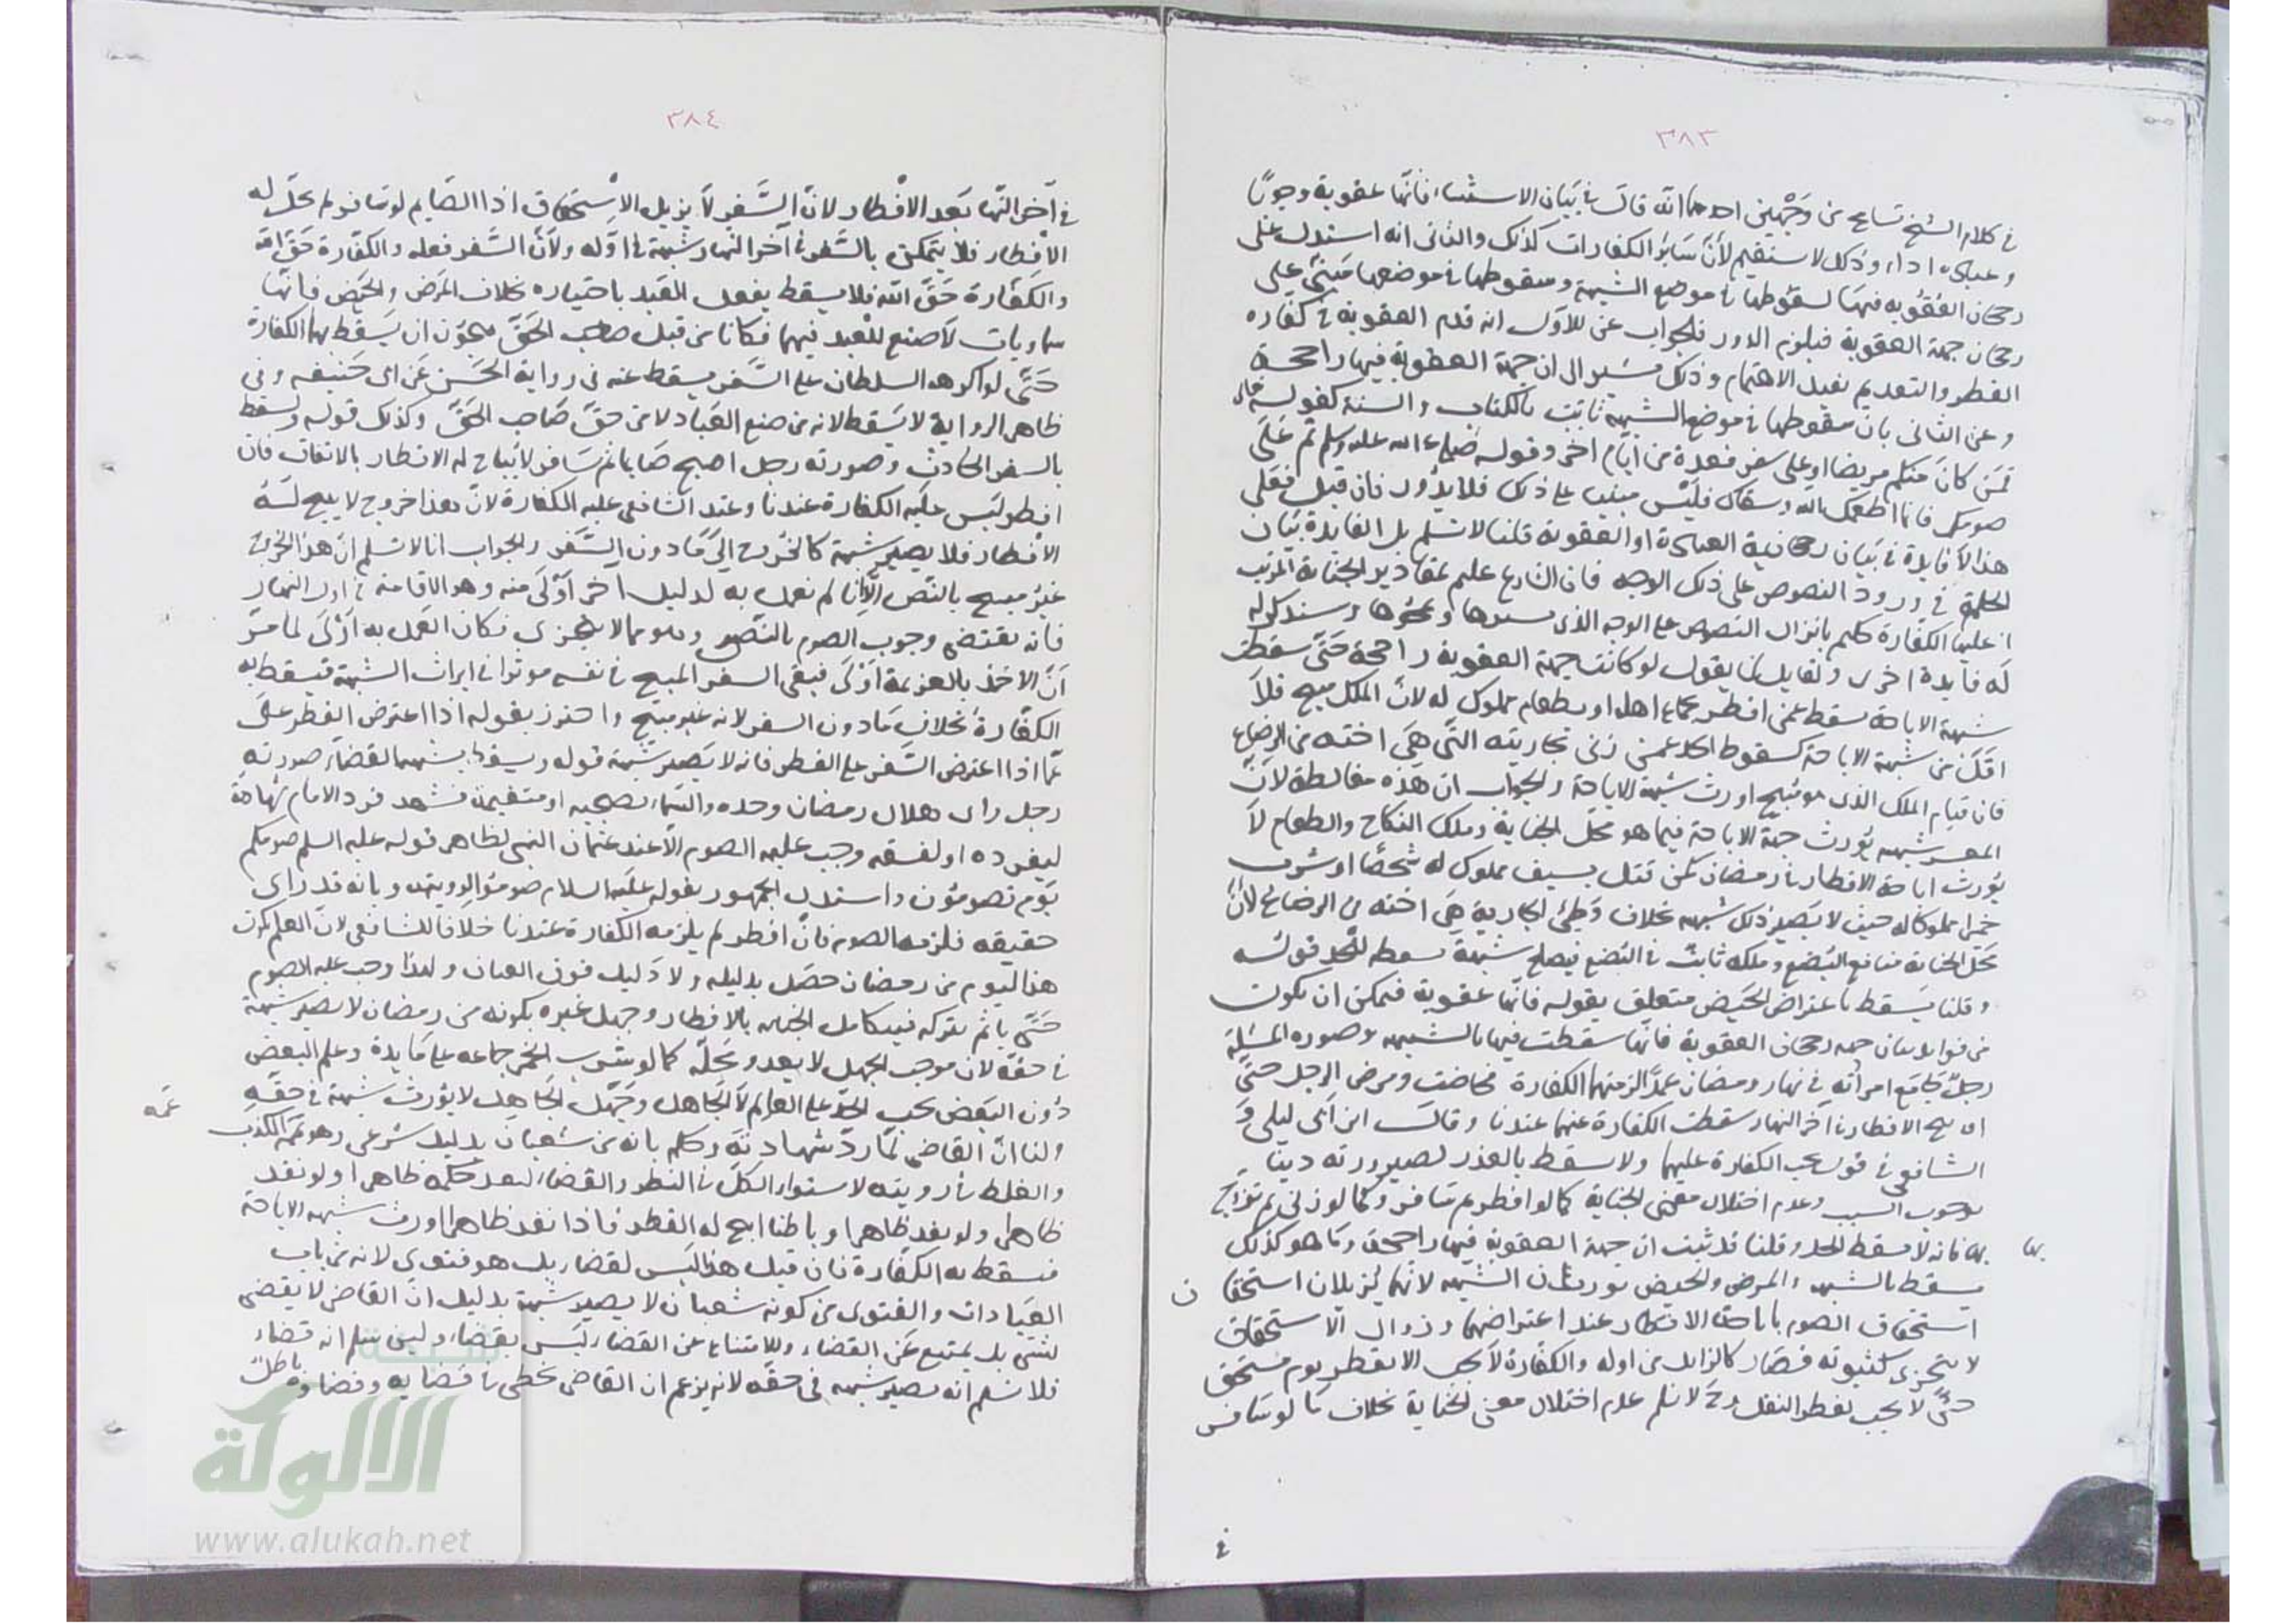 ٣٨٣
في كلام الشيخ تسامح من وجهين احدهما انه قال في بيان الاستثناء فانها عقوبة وجوبا
وعبادة اداء وذلك لا يستقيم لان سائر الكفارات كذلك والثاني انه استدل على
رجحان العقوبة فيها لسقوطها في موضع الشبهة وسقوطها في موضعها مبني على
رجحان جهة العقوبة فيلزم الدور فالجواب عن الاول انه قدم العقوبة في كفارة
الفطر والتقديم يفيد الاهتمام وذلك يشير الى ان جهة العقوبة فيها راجحة
وعن الثاني بان سقوطها في موضع الشبهة ثابت بالكتاب والسنة كقوله تعالى
فمن كان منكم مريضا او على سفر فعدة من ايام اخر وقوله صلى الله عليه وسلم تم على
صومك فانما اطعمك الله وسقاك فليس مبنيا على ذلك فلا يدور فان قيل فعلى
هذا لا فايدة في بيان رجحانية العبادة او العقوبة قلنا لا نسلم بل الفايدة بيان
الحكمة في ورود النصوص على ذلك الوجه فان الشارع عليم بمقادير الجناية المرتب
عليها الكفارة حكيم بانزال النصوص على الوجه الذي وسنذكر له
له فايدة اخرى ولقايل ان يقول لو كانت جهة العقوبة راجحة حتى سقطت
شبهة الاباحة سقط عمن افطر بجماع اهله او بطعام مملوك له لان الملك مبيح فلا
اقل من شبهة الاباحة كسقوط الحد عمن زنى بجاريته التي هي اخته من الرضاع
فان قيام الملك الذي هو مبيح اورث شبهة الاباحة والجواب ان هذه مغالطة لان
شبهة تورث جهة الاباحة فيما هو محل الجناية وملك النكاح والطعام لا
يورث اباحة الافطار في رمضان كمن قتل بسيف مملوك له شخصا او شرب
خمرا مملوكا له حيث لا يصير ذلك شبهة بخلاف وطئ الجارية هي اخته من الرضاع لان
محل الجناية منافع البضع وملكه ثابت في البضع فيصلح شبهة يسقط الحد قوله
وقلنا يسقط باعتراض الحيض متعلق بقوله فانها عقوبة فيمكن ان يكون
من فوايد بيان جهة رجحان العقوبة فانها سقطت فيها بالشبهة وصورة المسئلة
رجل جامع امرأته في نهار رمضان عمدا لزمتهما الكفارة فحاضت ومرض الرجل حتى
ابيح الافطار في آخر النهار سقطت الكفارة عنهما عندنا وقال ابن ابي ليلى و
الشافعي في قول يجب الكفارة عليهما ولا يسقط بالعذر لصيرورته دينا
بوجوب السبب وعدم اختلال معنى الجناية كما لو افطر ثم سافر وكما لو زنى ثم تزوج
بها فانه لا يسقط الحد وقلنا قد ثبت ان جهة العقوبة فيها راجحة وما هو كذلك
بها
يسقط بالشبهة والمرض والحيض يورثان الشبهة لانهما يزيلان استحقا
ن
استحقاق الصوم باباحة الافطار عند اعتراضهما وزوال الاستحقاق
لا يتجزى كثبوته فصار كالزايل من اوله والكفارة لا تجب الا بفطر يوم مستحق
حتى لا يجب بفطر النفل وح لا نسلم عدم اختلال معنى الجناية بخلاف ما لو سافر
في
٣٨٤
في آخر النهار بعد الافطار لان السفر لا يزيل الاستحقاق اذا الصايم لو سافر لم يحل له
الافطار فلا يتمكن بالسفر في آخر النهار شبهة في اوله ولان السفر فعله والكفارة حق الله
والكفارة حق الله فلا يسقط بفعل العبد باختياره بخلاف المرض والحيض فانها
سماويات لا صنع للعبد فيهما فكانا من قبل صاحب الحق فيجوز ان يسقط بهما الكفارة
حتى لو اكرهه السلطان على السفر يسقط عنه في رواية الحسن عن ابي حنيفه وفي
ظاهر الرواية لا يسقط لانه من صنع العباد لا من حق صاحب الحق وكذلك قوله ويسقط
بالسفر الحادث وصورته رجل اصبح صايما ثم سافر لا يباح له الافطار بالاتفاق فان
افطر ليس عليه الكفارة عندنا وعند الشافعي عليه الكفارة لان هذا خروج لا يبيح له
الافطار فلا يصير شبهة كالخروج الى ما دون السفر والجواب انا لا نسلم ان هذا الخروج
غير مبيح بالنص الا انا لم نعمل به لدليل آخر اولى منه وهو الاقامة في اول النهار
فانه يقتضي وجوب الصوم بالنص وهو مما لا يتجزى فكان العمل به اولى لما مر
ان الاخذ بالعزيمة اولى فبقي السفر المبيح في نفسه موثرا في ايراث الشبهة فيسقط به
الكفارة بخلاف ما دون السفر لانه غير مبيح واحترز بقوله اذا اعترض الفطر على
عما اذا اعترض السفر على الفطر فانه لا يصير شبهة قوله ويسقط بشبهة القضاء صورته
رجل راى هلال رمضان وحده والسماء مصحية او متغيمة فشهد فرد الامام شهادته
ليفرده او لفسقه وجب عليه الصوم الا عند عثمان البتي لظاهر قوله عليه السلم صومكم
يوم تصومون واستدل الجمهور بقوله عليه السلام صوموا لرويته وبانه قد راى
حقيقة فلزمه الصوم فان افطر لم يلزمه الكفارة عندنا خلافا للشافعي لان العلم بكون
هذا اليوم من رمضان حصل بدليله ولا دليل فوق العيان ولهذا وجب عليه الصوم
حتى ياثم بتركه فيتكامل الجناية بالافطار وجهل غيره بكونه من رمضان لا يصير شبهة
في حقه لان موجب الجهل لا يعدو محله كما لو شرب الخمر جماعة على مايدة وعلم البعض
دون البعض يجب الحد على العالم لا الجاهل وجهل الجاهل لا يورث شبهة في حقه
ولنا ان القاضي لما رد شهادته وحكم بانه من شعبان بدليل شرعي وهو تهمة الكذب
تهمه
والغلط في رويته لاستواء الكل في النظر والقضاء بعد حكمه ظاهرا ولو نفذ
ظاهرا ولو نفذ ظاهرا وباطنا ابيح له الفطر فاذا نفذ ظاهرا اورث شبهة الاباحة
فيسقط به الكفارة فان قيل هذا ليس لقضاء بل هو فتوى لانه من باب
العبادات والفتوى من كونه شعبان لا يصير شبهة بدليل ان القاضي لا يقضي
لشئ بل يمتنع عن القضاء والامتناع عن القضاء ليس بقضاء ولين سلم انه قضاء
فلا نسلم انه يصير شبهة في حقه لانه يزعم ان القاضي مخطئ في قضايه وقضاؤه باطل
الألوكة
www.alukah.net